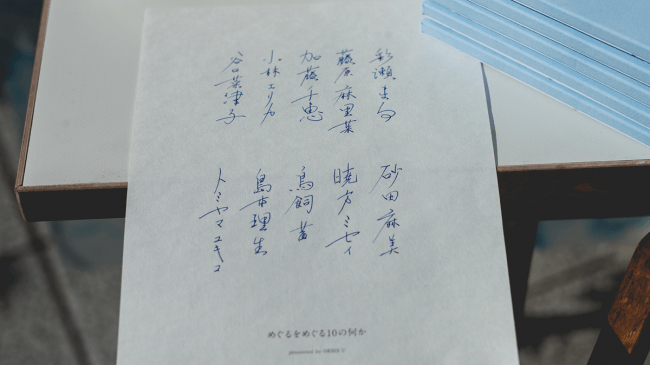 彩瀬まる
藤原麻里菜
加藤千恵
小林エリカ
谷口菜津子
砂田麻美
暁方ミセイ
鳥飼茜
島本理生
トミヤマユキコ
めぐるをめぐる10の何か
presented by